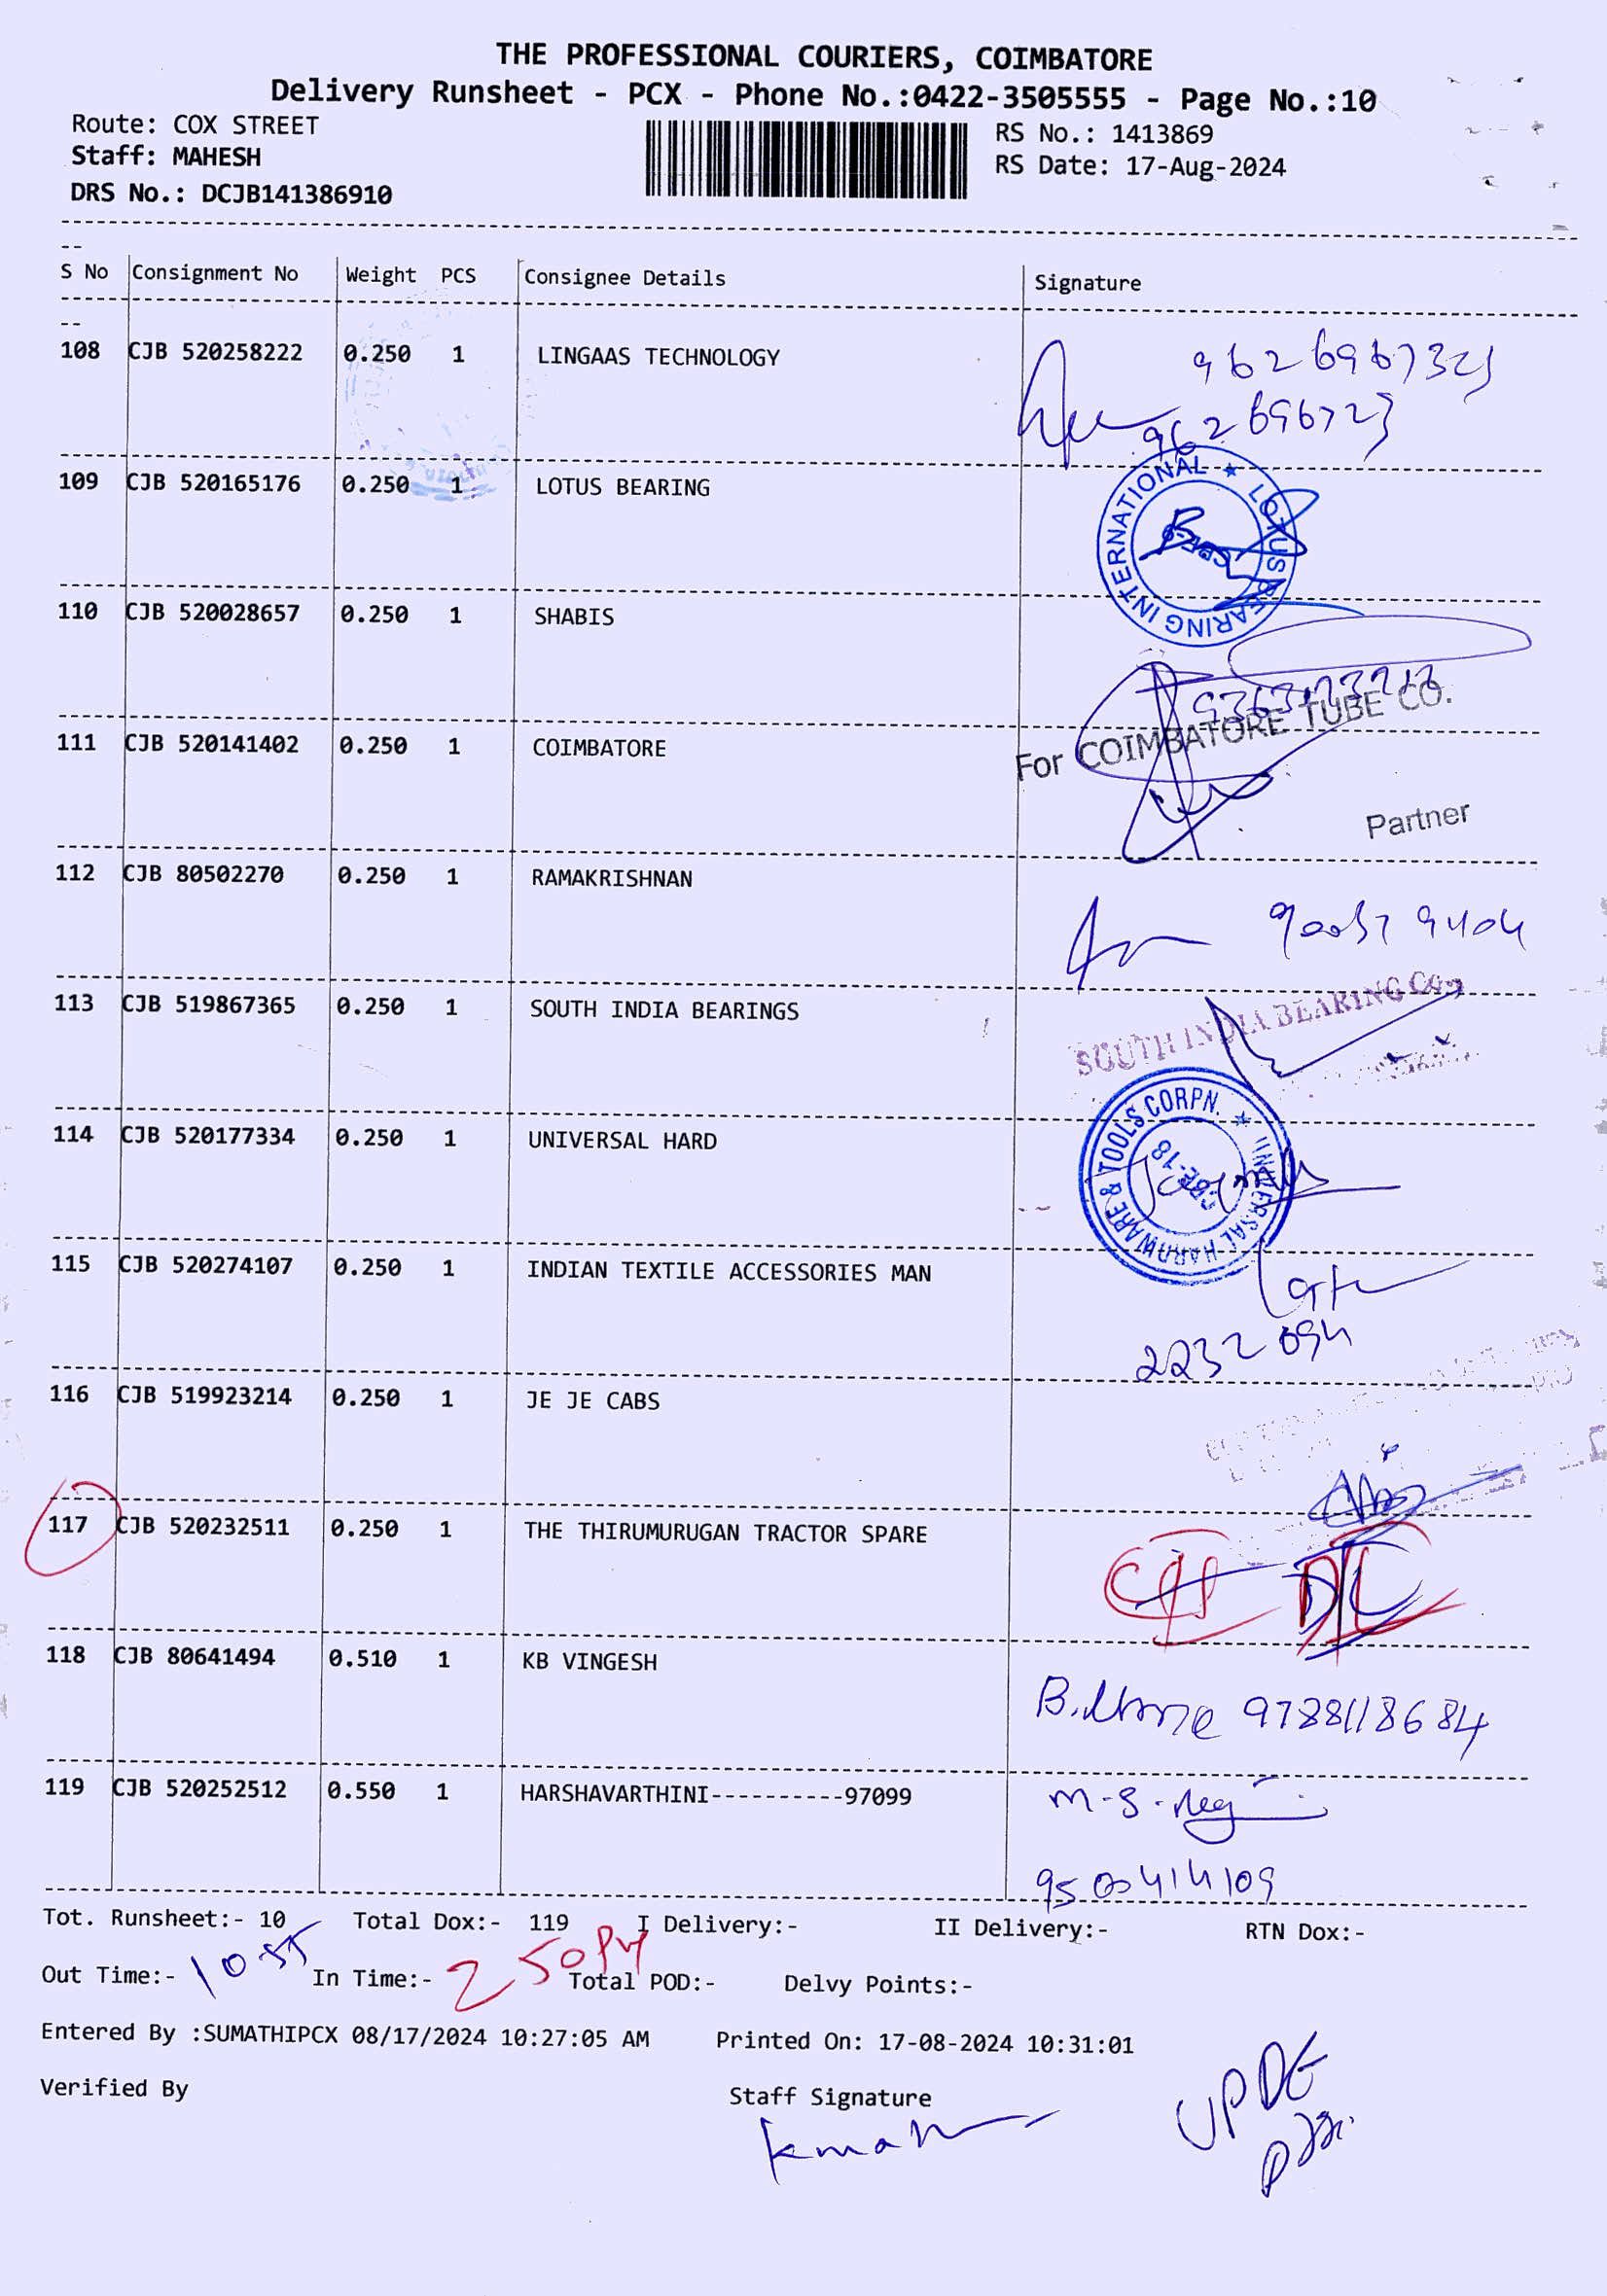 THE PROFESSIONAL COURIERS, COIMBATORE
Delivery Runsheet - PCX - Phone No.:0422-3505555 - Page No.:10
Route: COX STREET
Staff: MAHESH
DRS No.: DCJB141386910
RS No.: 1413869
RS Date: 17-Aug-2024
S No Consignment No Weight PCS Consignee Details Signature
108 CJB 520258222 0.250 1 LINGAAS TECHNOLOGY
109 CJB 520165176 0.250 1 LOTUS BEARING
LOTUS BEARING INTERNATIONAL ★
110 CJB 520028657 0.250 1 SHABIS
111 CJB 520141402 0.250 1 COIMBATORE
For COIMBATORE TUBE CO.
Partner
112 CJB 80502270 0.250 1 RAMAKRISHNAN
113 CJB 519867365 0.250 1 SOUTH INDIA BEARINGS
SOUTH INDIA BEARING Co.,
114 CJB 520177334 0.250 1 UNIVERSAL HARD
UNIVERSAL HARDWARE & TOOLS CORPN. ★
CBE-18
115 CJB 520274107 0.250 1 INDIAN TEXTILE ACCESSORIES MAN
2232094
116 CJB 519923214 0.250 1 JE JE CABS
117 CJB 520232511 0.250 1 THE THIRUMURUGAN TRACTOR SPARE
D/L
118 CJB 80641494 0.510 1 KB VINGESH
9788118684
119 CJB 520252512 0.550 1 HARSHAVARTHINI----------97099
9500414109
Tot. Runsheet:- 10 Total Dox:- 119 I Delivery:- II Delivery:- RTN Dox:-
Out Time:- 10.55 In Time:- 2 50 PM Total POD:- Delvy Points:-
Entered By :SUMATHIPCX 08/17/2024 10:27:05 AM Printed On: 17-08-2024 10:31:01
Verified By Staff Signature